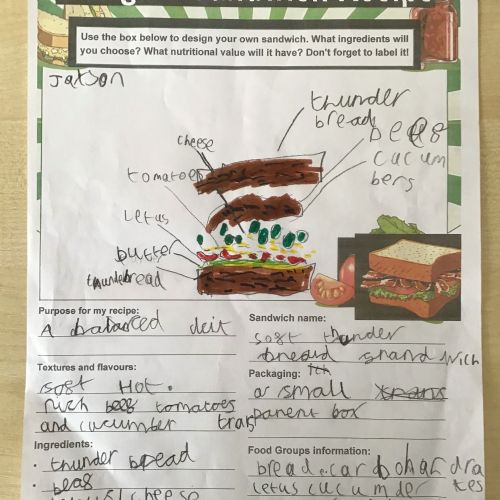 Use the box below to design your own sandwich. What ingredients will
you choose? What nutritional value will it have? Don't forget to label it!
Jatson
thunder
bread
cheese
peas
cucum
bers
tomatoes
Letus
butter
thunder bread
Purpose for my recipe:
A balanced deit
Sandwich name:
soft thunder
bread sandwich
Textures and flavours:
soft Hot.
rich tomatoes
and cucumber
Packaging:
a small trans
parent box
Ingredients:
• thunder bread
• peas
cheese
Food Groups information:
bread carbohydra
tes
Letus cucumber